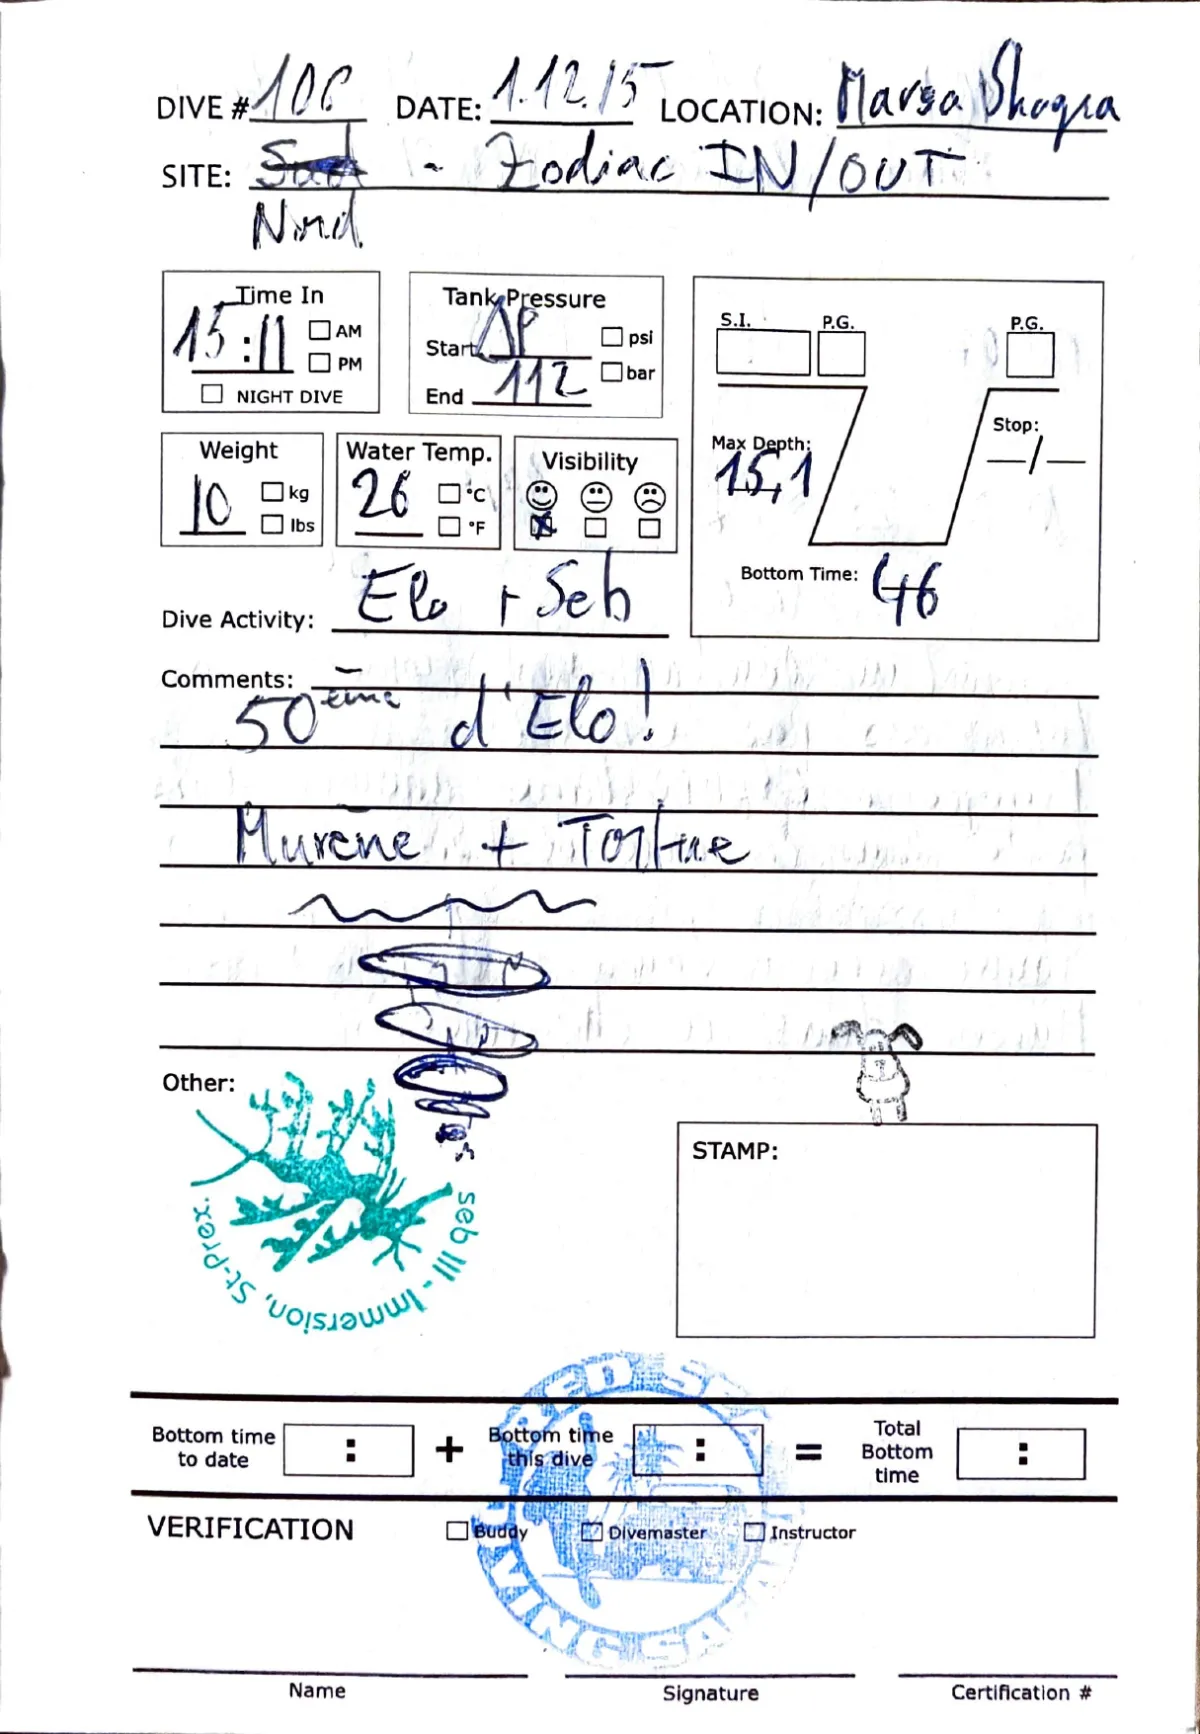 DIVE # 106 DATE: 1.12.15 LOCATION: Marsa Shagra
SITE: Sud - Zodiac IN/OUT
Nord
Time In
15:11 AM
PM
NIGHT DIVE
Tank Pressure
Start ΔP psi
End 112 bar
S.I. P.G. P.G.
Max Depth: 15,1
Stop:
—/—
Bottom Time: 46
Weight
10 kg
lbs
Water Temp.
26 °C
°F
Visibility
Dive Activity: Elo + Seb
Comments:
50ème d'Elo!
Murène + Tortue
Other:
seb III - Immersion, St-Prex.
STAMP:
RED SEA DIVING SAFARI
Bottom time to date : + Bottom time this dive : = Total Bottom time :
VERIFICATION Buddy Divemaster Instructor
Name Signature Certification #